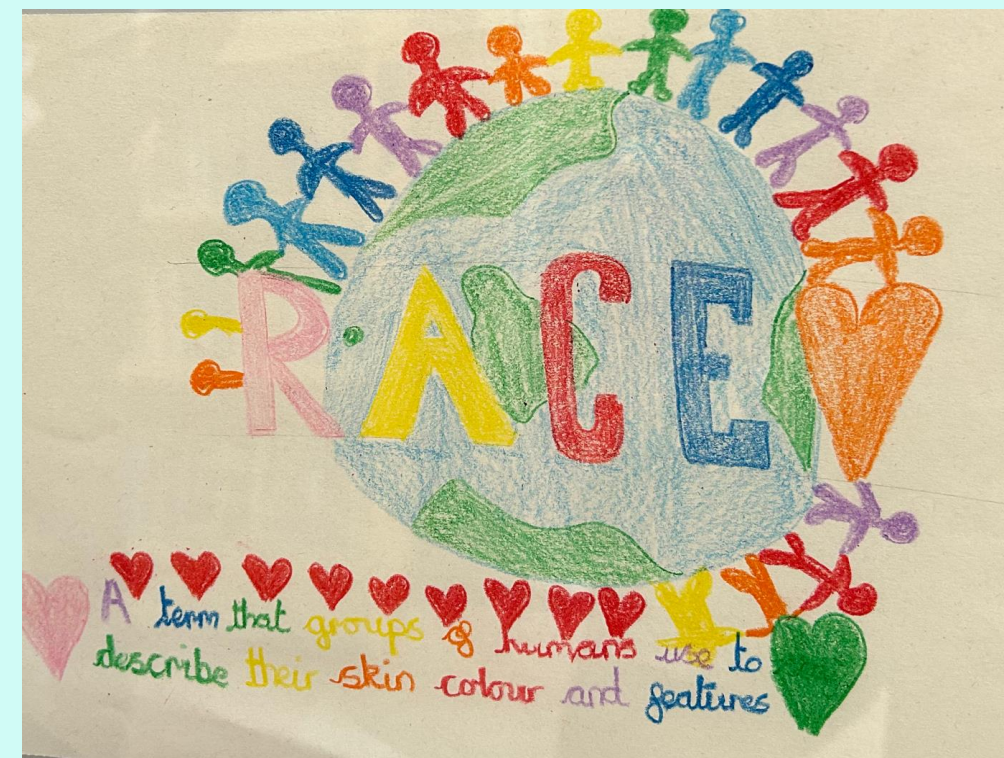 RACE
A term that groups of humans use to
describe their skin colour and features